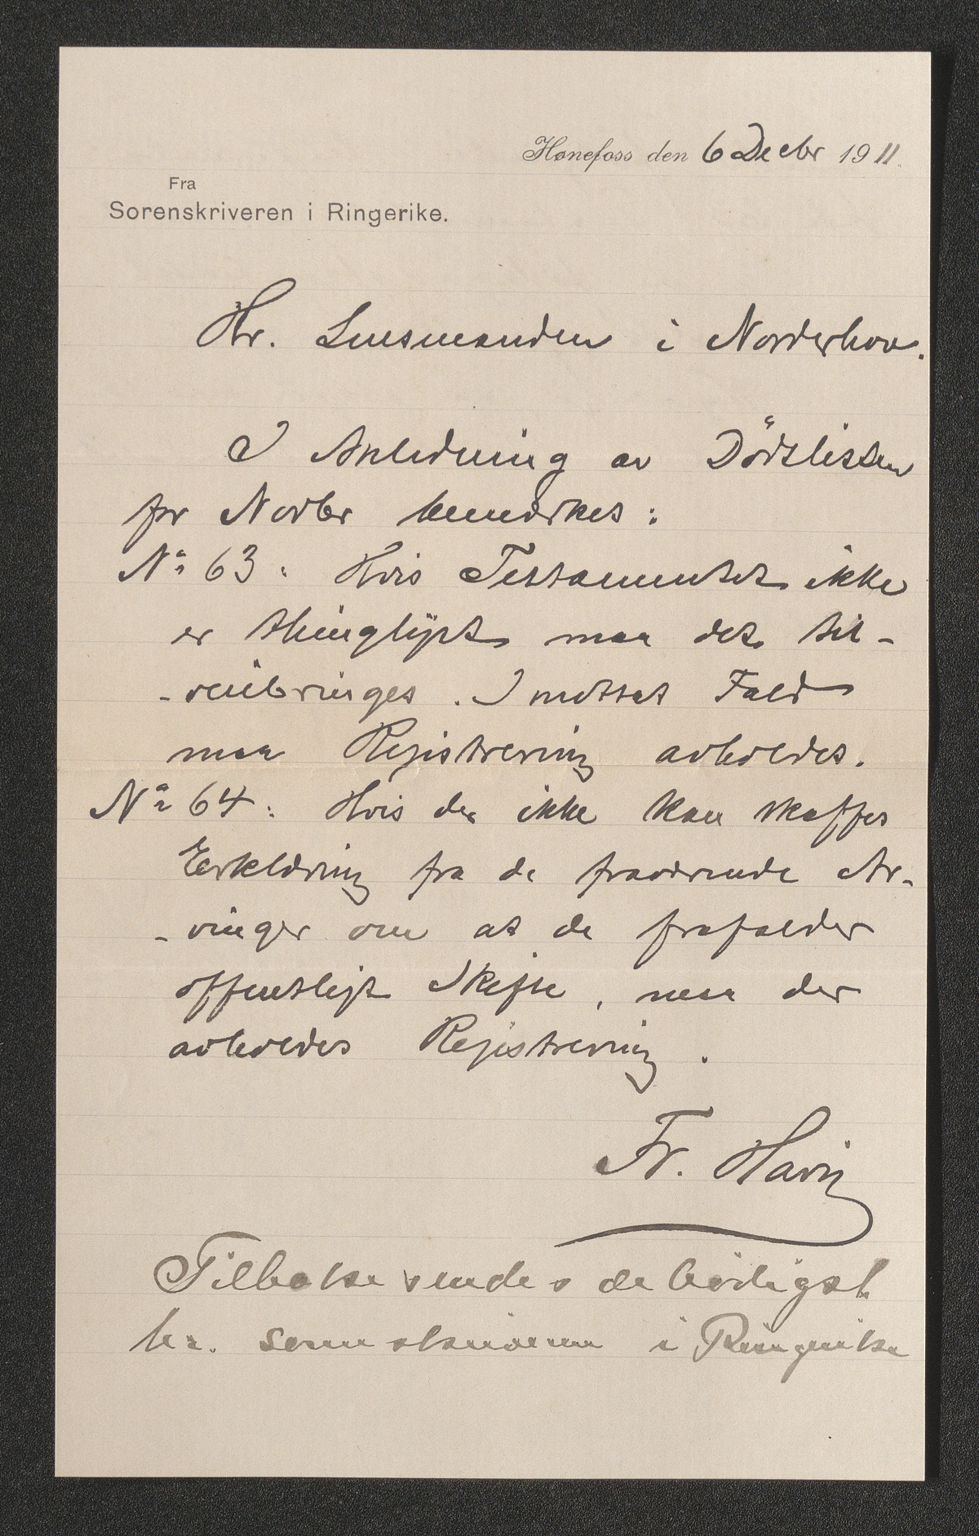 Hønefoss den 6 Decbr 1911.
Fra
Sorenskriveren i Ringerike.
Hr. Lensmanden i Norderhov.
I Anledning av Dödslisten
for Novbr bemærkes:
No 63: Hvis Testamentet ikke
er thinglyst maa det til-
-veiebringes. I motsat Fald
maa Registrering avholdes.
No 64: Hvis der ikke kan skaffes
Erklæring fra de fraværende Ar-
-vinger om at de frafalder
offentligt Skifte, maa der
avholdes Registrering.
Fr. Harris
Tilbake sendes ærbødigst
hr. sorenskriveren i Ringerike